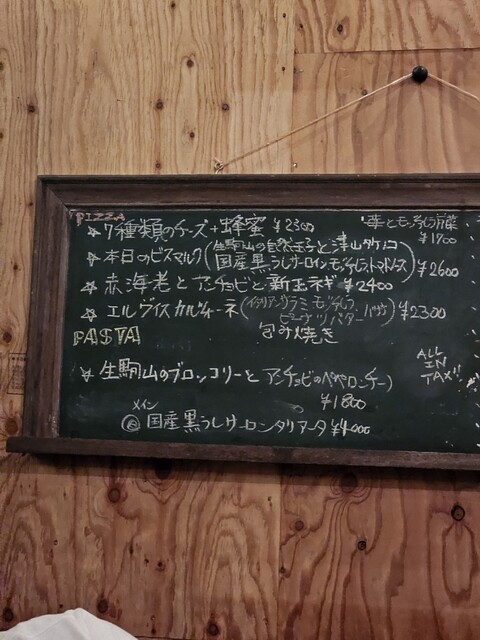 PIZZA
☆ 7種類のチーズ+蜂蜜 ¥2300
苺ともっ
¥1700
☆ 本日のビスマルク(生駒山の自然玉子と津山
国産黒うしサーロイン モッツァレラ、トマトソース) ¥2600
☆ 赤海老とアンチョビと新玉ネギ ¥2400
☆ エルヴィスカルヴォーネ(イタリアンサラミ モッツァレラ
ピーナッツバター) ¥2300
包み焼き
PASTA
☆ 生駒山のブロッコリーとアンチョビのペペロンチーノ
¥1800
ALL
IN
TAX!!
メイン
国産黒うしサーロンタリアータ ¥4000